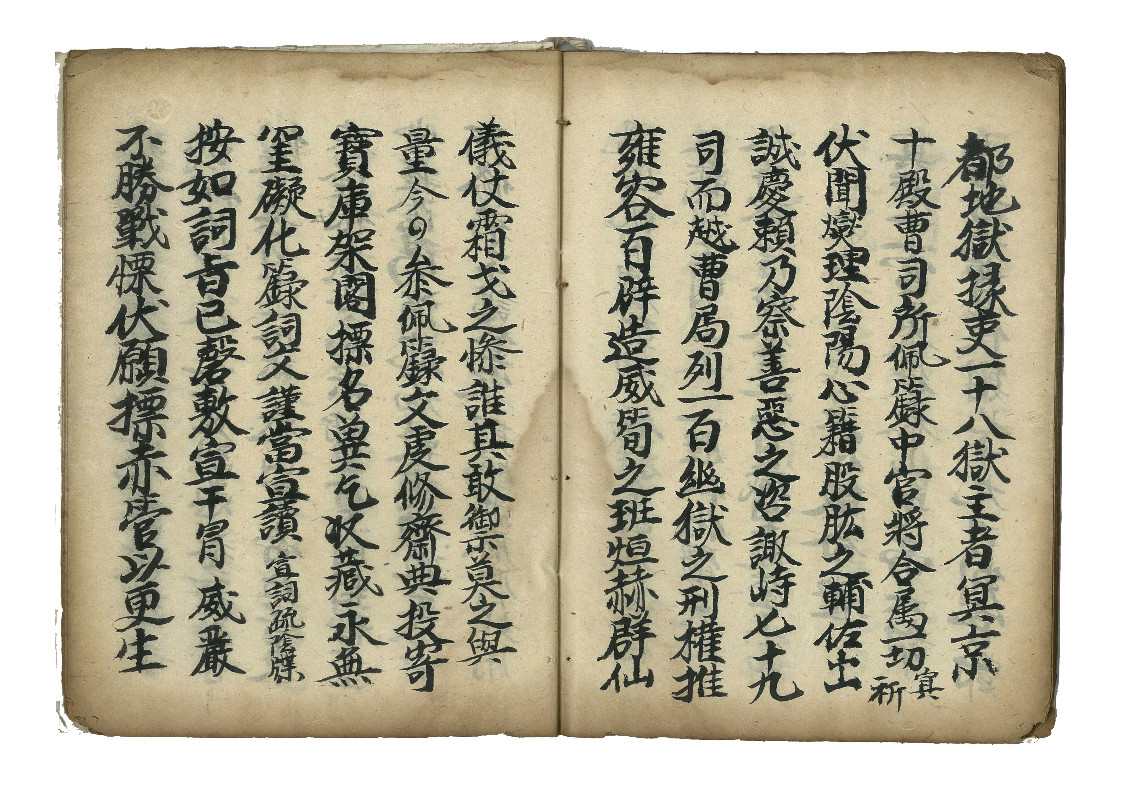 都地獄掾吏一十八獄主者冥京
十殿曹司所佩籙中官將合属一切 寘祈
伏聞燮理陰陽心籍股肱之輔佐出
誠慶賴乃察善惡之咨諏峙七十九
司而越曹局列一百幽獄之刑權推
雍容百辟造威筍之班烜赫群仙
儀仗霜戈之慘誰其敢禦莫之與
量今 叅佩籙文虔修齋典投寄
寶庫架閣摽名兾乞收藏永無
罣礙化籙詞文謹當宣讀 宣詞疏陰牒
按如詞旨已磬敷宣干冒威嚴
不勝戰慄伏願摽赤 以更生